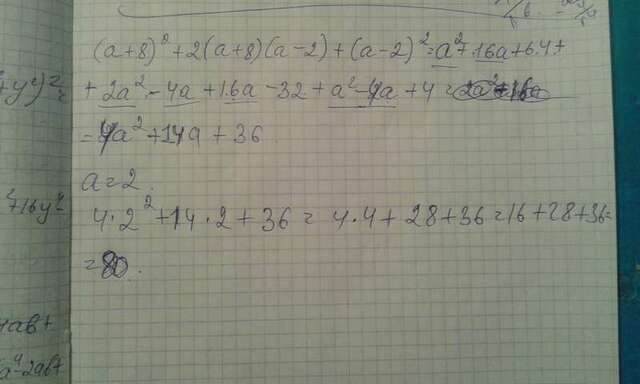 (a+8)²+2(a+8)(a-2)+(a-2)²=a²+16a+64+
+2a²-4a+16a-32+a²-4a+4=
=4a²+14a+36
a=2.
4·2²+14·2+36=4·4+28+36=16+28+36=
=80.